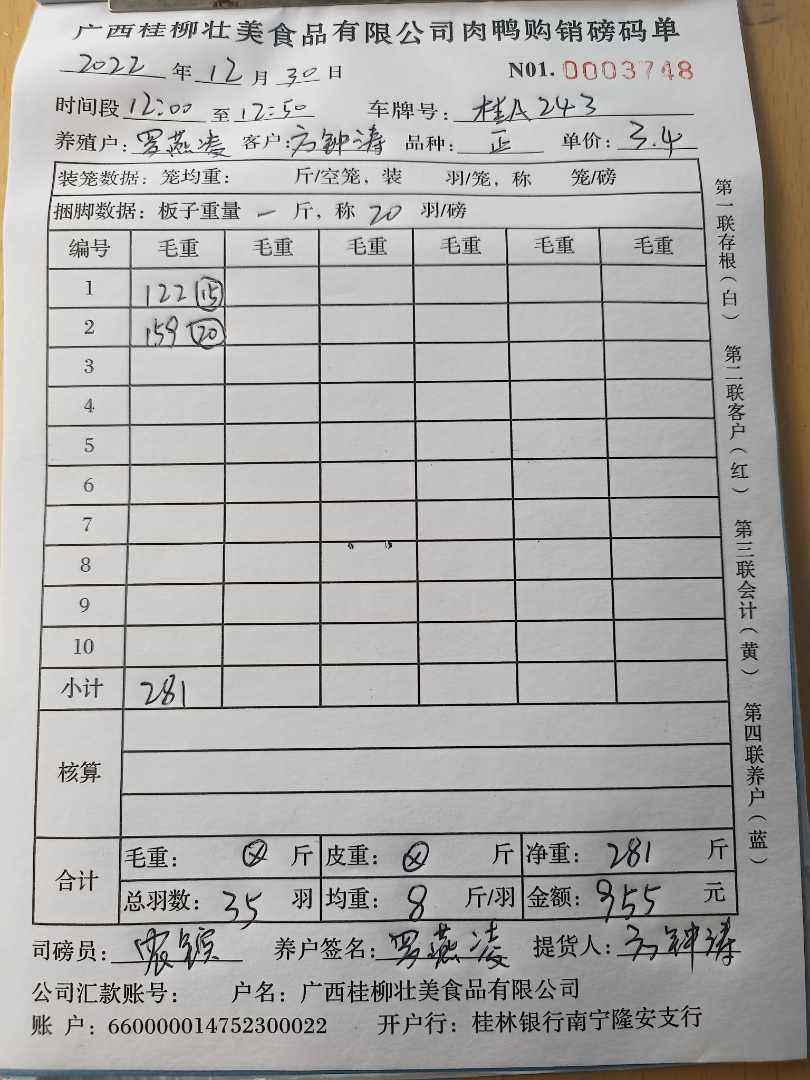 广西桂柳壮美食品有限公司肉鸭购销磅码单
2022 年 12 月 30 日 N01. 0003748
时间段 12:00 至 12:50 车牌号: 桂A243
养殖户: 罗燕凌 客户: 方钟涛 品种: 正 单价: 3.4
装笼数据: 笼均重: 斤/空笼, 装 羽/笼, 称 笼/磅
捆脚数据: 板子重量 一 斤, 称 20 羽/磅
编号 毛重 毛重 毛重 毛重 毛重 毛重
1 122 15
2 159 20
3
4
5
6
7
8
9
10
小计 281
核算
合计 毛重: 斤 皮重: 斤 净重: 281 斤
总羽数: 35 羽 均重: 8 斤/羽 金额: 955 元
司磅员: 养户签名: 罗燕凌 提货人: 方钟涛
公司汇款账号: 户名: 广西桂柳壮美食品有限公司
账 户: 660000014752300022 开户行: 桂林银行南宁隆安支行
第一联存根(白) 第二联客户(红) 第三联会计(黄) 第四联养户(蓝)